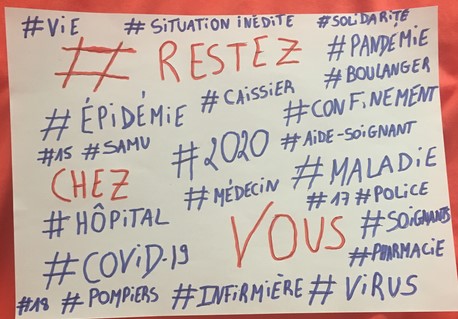 #ViE #SiTUATiON iNÉDiTE #SOLiDARiTÉ
# RESTEZ
#PANDÉMiE
#BOULANGER
#CAiSSiER
#CONFiNEMENT
#ÉPiDÉMiE
#AiDE-SOiGNANT
#15 #SAMU
#2020
#MALADiE
CHEZ
#MÉDECiN
#17 #POLiCE
#HÔPiTAL
VOUS
#SOiGNANTS
#PHARMACiE
#COViD-19
#18 # POMPiERS #iNFiRMiÈRE # ViRUS